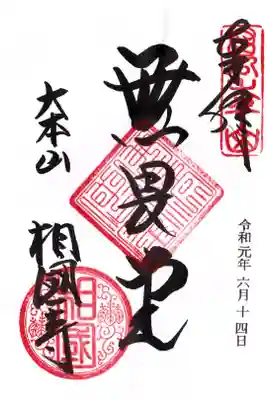 奉拝
無畏堂
大本山
相國寺
令和元年 六月 十四日